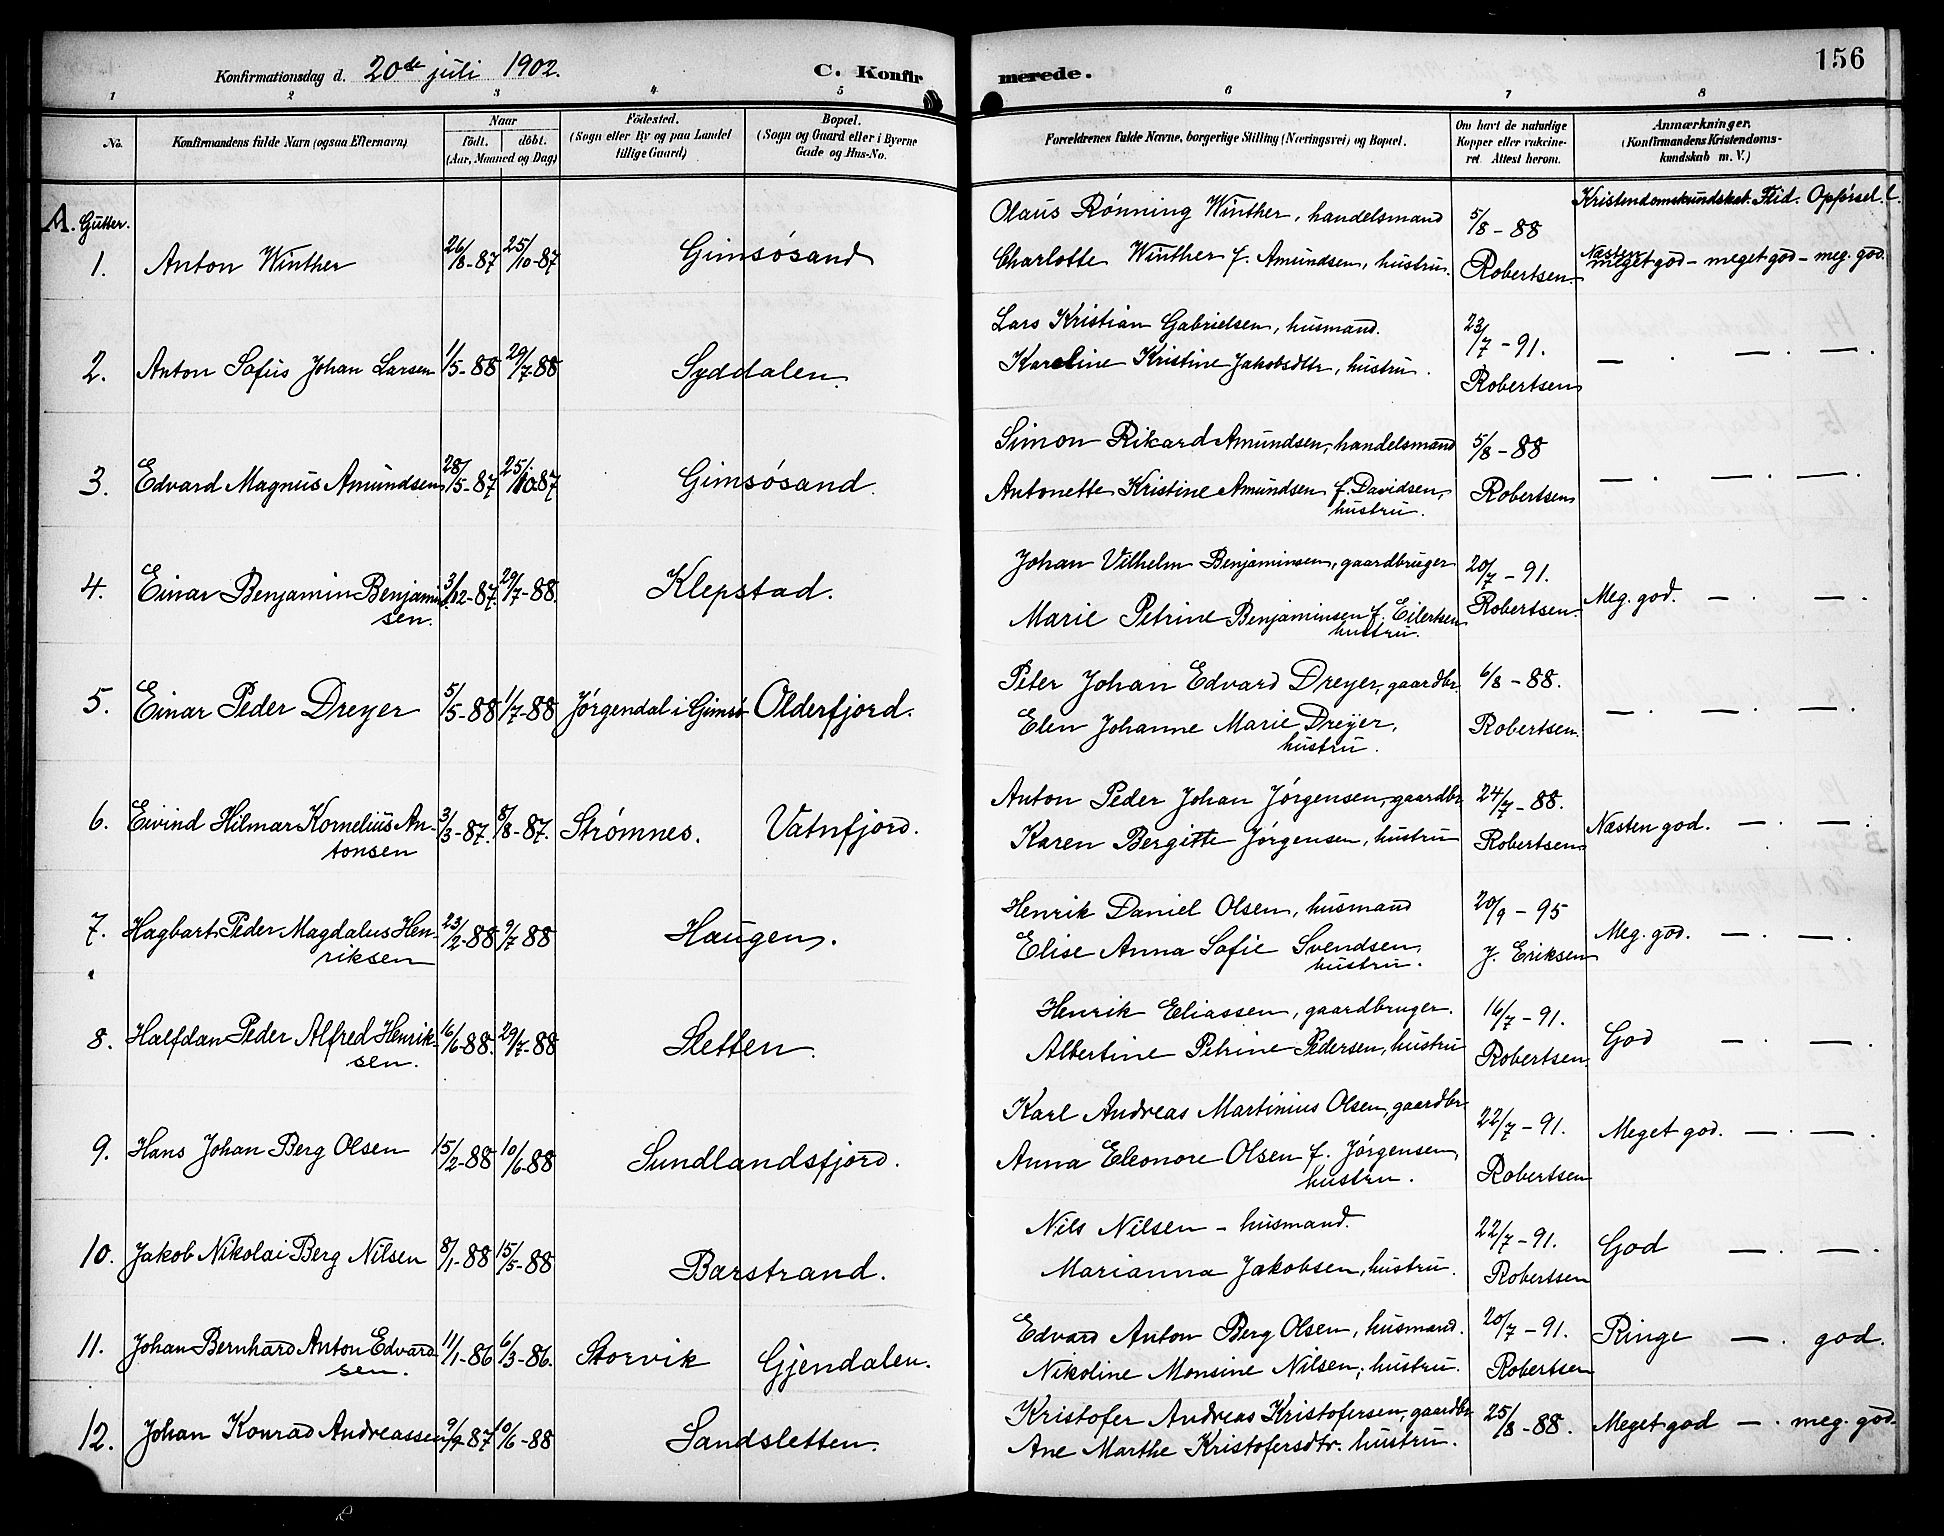 156
Konfirmationsdag d. 20de juli 1902. C. Konfirmerede.
1 2 3 4 5 6 7 8
No. Konfirmandens fulde Navn (ogsaa Efternavn) Naar födt. döbt. (Aar, Maaned og Dag) Födested. (Sogn eller By og paa Landet tillige Gaard) Bopæl. (Sogn og Gaard eller i Byerne Gade og Hus-No. Forældrenes fulde Navne, borgerlige Stilling (Næringsvei) og Bopæl. Om havt de naturlige Kopper eller vakcineret. Attest herom. Anmærkninger. (Konfirmandens Kristendomskundskab m. V.)
A. Gutter.
Kristendomskundskab. Flid. Opförsel.
1. Anton Winther 26/8-87 25/10-87 Gimsösand
Olaus Rönning Winther, handelsmand 5/8-88
Charlotte Winther f. Amundsen, hustru. Robertsen. Næsten meget god - meget god - meg. god.
2. Anton Sofus Johan Larsen 1/5-88 29/7-88 Syddalen.
Lars Kristian Gabrielsen, husmand. 23/7-91.
Karoline Kristine Jakobsdttr, hustru. Robertsen — . — . — .
3. Edvard Magnus Amundsen 28/5-87 25/10-87 Gimsösand.
Simon Rikard Amundsen, handelsmand 5/8-88
Antonette Kristine Amundsen f. Davidsen, Robertsen — . — . — .
hustru.
4. Einar Benjamin Benjamin- 3/12-87. 29/7-88. Klepstad.
sen.
Johan Vilhelm Benjaminsen, gaardbruger 20/7-91.
Marie Petrine Benjaminsen f. Eilertsen Robertsen. Meg. god. — . — .
hustru.
5. Einar Peder Dreyer 5/5-88 1/7-88 Jörgendal i Gimsö Olderfjord.
Peter Johan Edvard Dreyer, gaardbr. 6/8-88.
Elen Johanne Marie Dreyer, Robertsen. — . — . — .
hustru.
6. Eivind Hilmar Kornelius An- 3/3-87. 8/8-87. Strömnes. Vatnfjord.
tonsen
Anton Peder Johan Jörgensen, gaardbr 24/7-88.
Karen Bergitte Jörgensen, hustru Robertsen Næsten god. — . — .
7. Hagbart Peder Magdalus Hen- 23/2-88 9/7-88 Haugen.
riksen
Henrik Daniel Olsen, husmand 20/9-95
Elise Anna Sofie Svendsen, J. Eriksen Meg. god. — . — .
hustru.
8. Halfdan Peder Alfred Henrik- 16/6-88. 29/7-88 Sletten.
sen.
Henrik Eliassen, gaardbruger. 16/7-91.
Albertine Petrine Pedersen, hustru Robertsen. God — . — .
9. Hans Johan Berg Olsen 15/2-88 10/6-88 Sundlandsfjord.
Karl Andreas Martinius Olsen, gaardbr 22/7-91.
Anna Eleonore Olsen f. Jörgensen, Robertsen Meget god. — . — .
hustru.
10. Jakob Nikolai Berg Nilsen 8/1-88 15/5-88 Barstrand.
Nils Nilsen - husmand. 22/7-91.
Marianna Jakobsen, hustru. Robertsen God — . — .
11. Johan Bernhard Anton Edvard 11/1-86 6/3-86. Storvik Gjendalen.
sen.
Edvard Anton Berg Olsen, husmand. 20/7-91.
Nikoline Monsine Nilsen, hustru. Robertsen Ringe — . god.
12. Johan Konrad Andreassen 9/9-87 10/6-88 Sandsletten.
Kristofer Andreas Kristofersen, gaardbr 25/8-88. Meget god — . meg. god.
Ane Marthe Kristofersdtr. hustru.